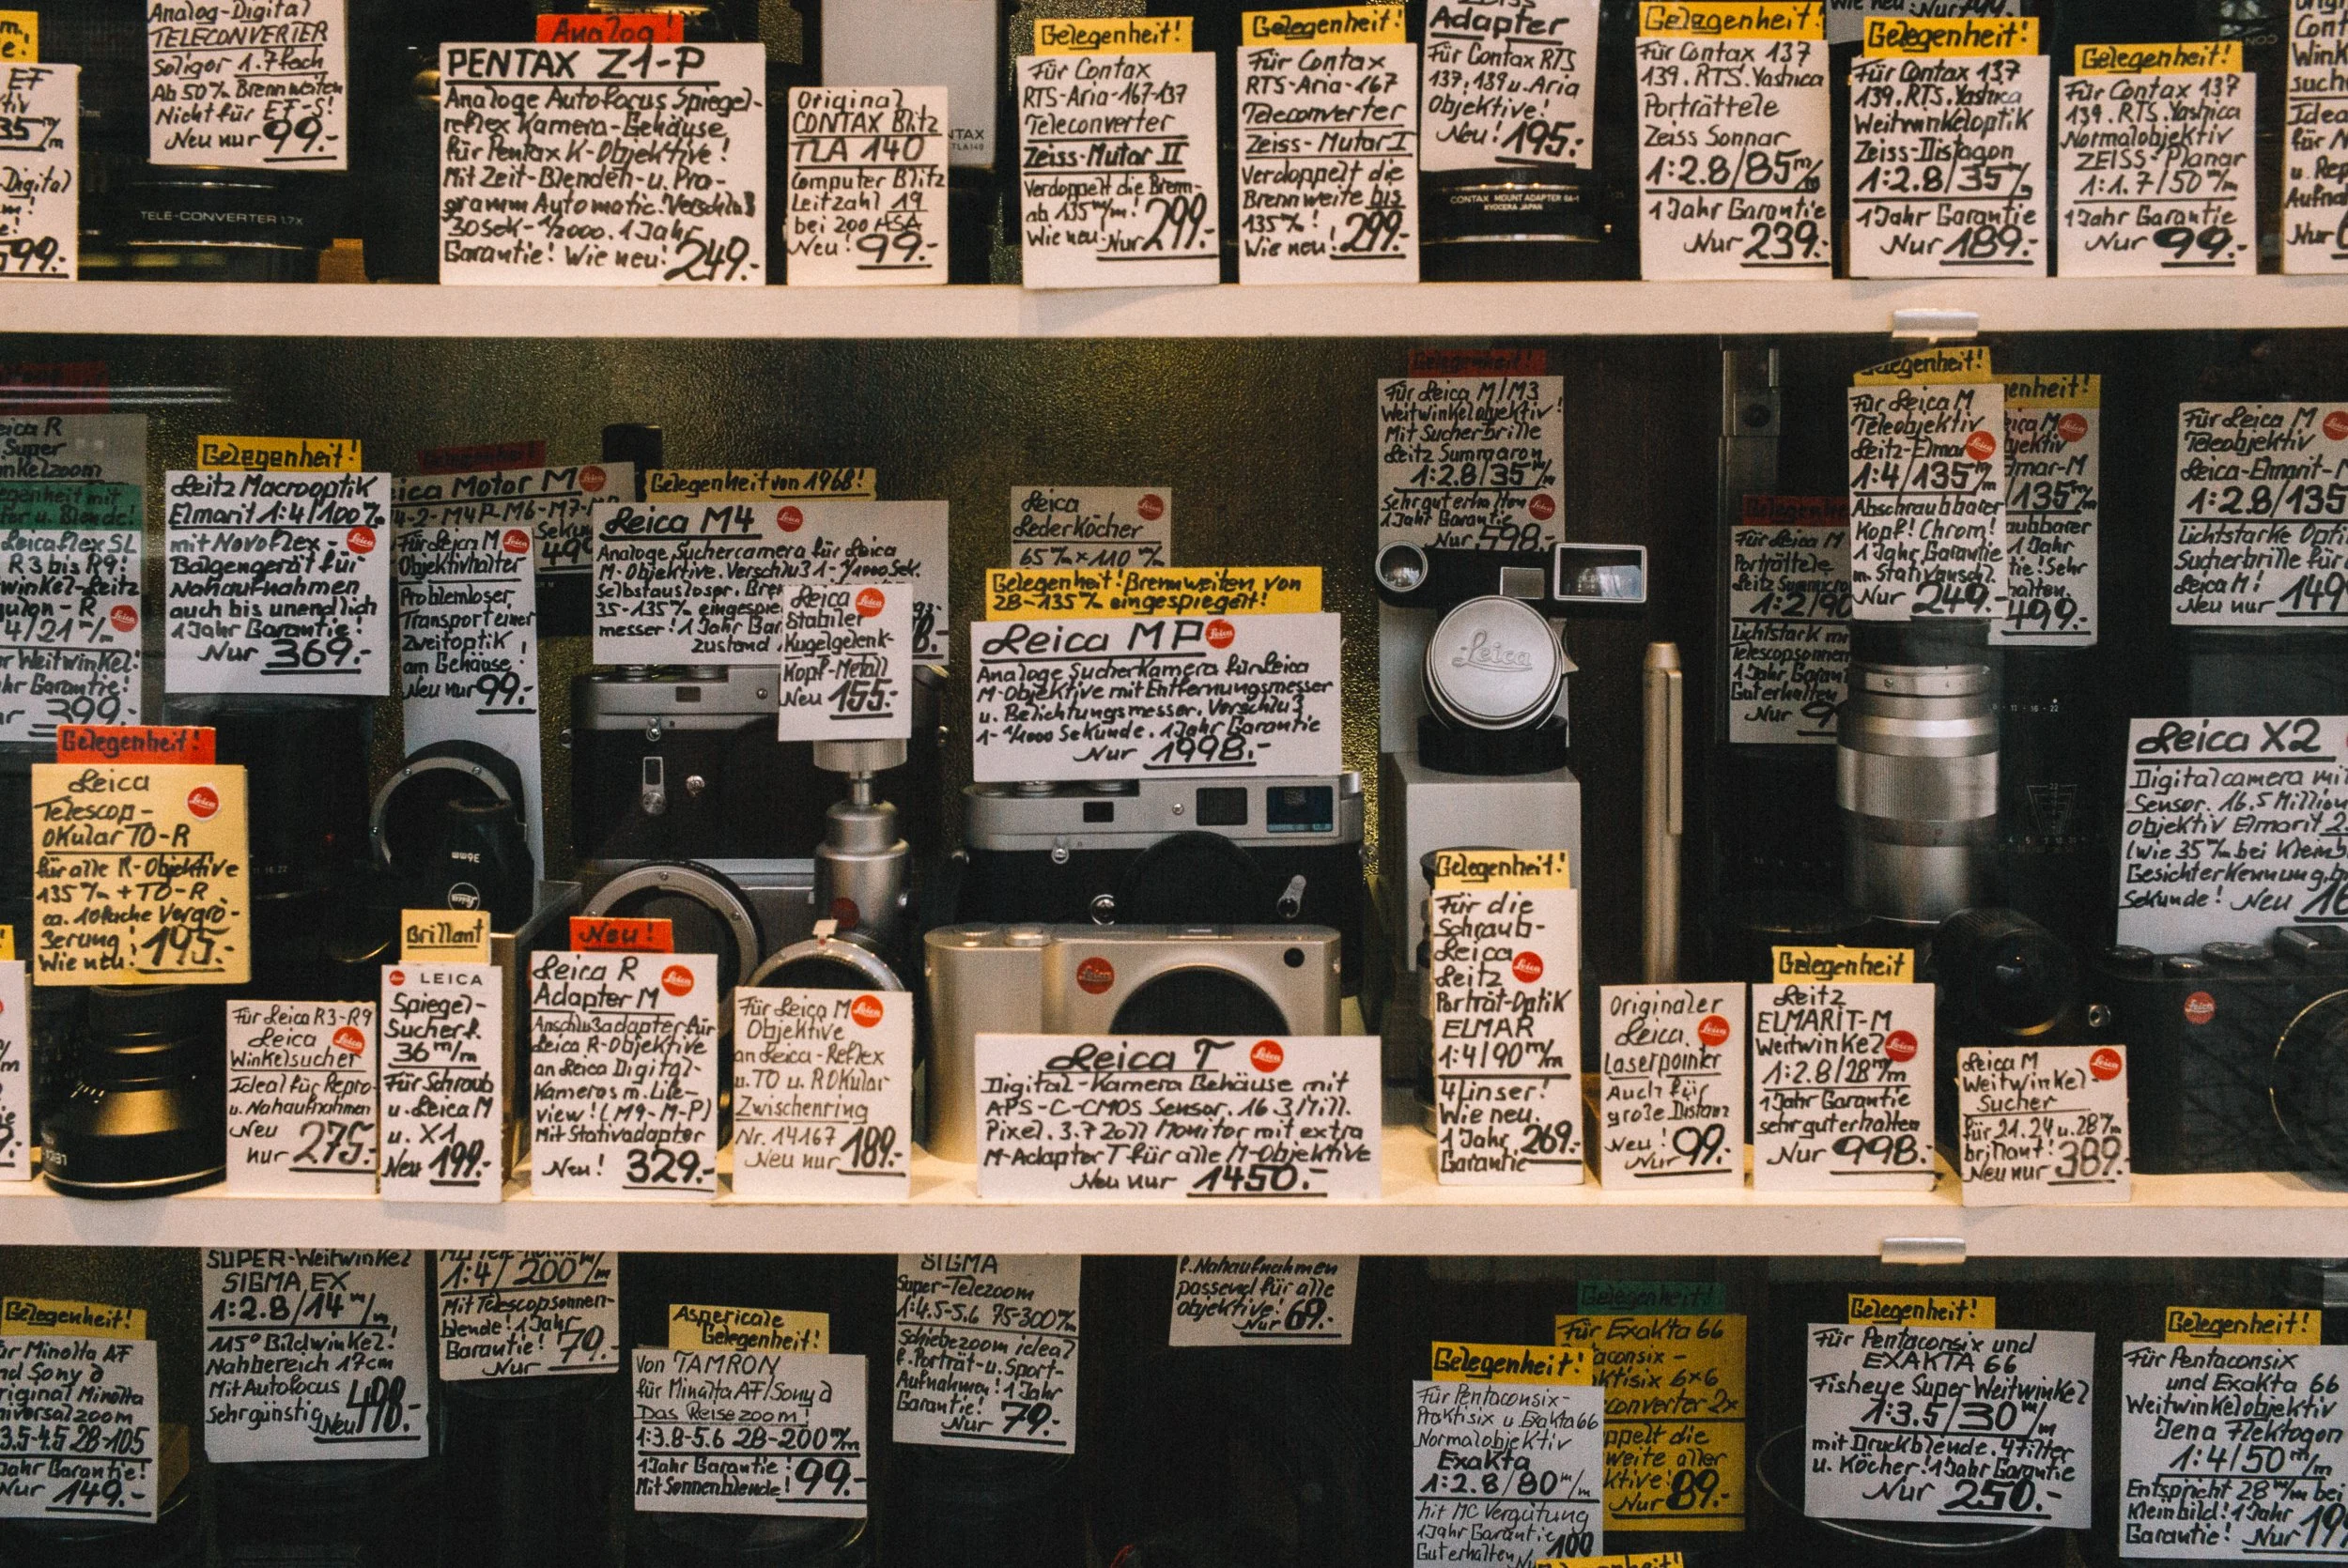 Analog-Digital
TELECONVERTER
Soligor 1.7fach
Ab 50% Brennweiten
Nicht für EF-S!
Neu nur 99.-
TELE-CONVERTER 1.7X
Analog!
PENTAX Z1-P
Analoge Autofocus Spiegel-
reflex Kamera-Gehäuse
für Pentax K-Objektive!
Mit Zeit-Blenden-u. Pro-
gramm Automatic. Verschluß
30sek-1/2000. 1 Jahr
Garantie! Wie neu! 249.-
Original
CONTAX Blitz
TLA 140
Computer Blitz
Leitzahl 19
bei 200 ASA
Neu! 99.-
Gelegenheit!
Für Contax
RTS-Aria-167-137
Teleconverter
Zeiss-Mutar II
Verdoppelt die Brenn-
ab 135 m/m!
Wie neu! Nur 299.-
Gelegenheit!
Für Contax
RTS-Aria-167
Teleconverter
Zeiss-Mutar I
Verdoppelt die
Brennweite bis
135%!
Wie neu! 299.-
Adapter
Für Contax RTS
137, 139 u. Aria
Objektive!
Neu! 195.-
CONTAX MOUNT ADAPTER GA-1
KYOCERA JAPAN
Gelegenheit!
Für Contax 137
139. RTS. Yashica
Porträttele
Zeiss Sonnar
1:2.8/85 m/m
1 Jahr Garantie
Nur 239.-
Gelegenheit!
Für Contax 137
139. RTS. Yashica
Weitwinkeloptik
Zeiss-Distagon
1:2.8/35 m/m
1 Jahr Garantie
Nur 189.-
Gelegenheit!
Für Contax 137
139. RTS. Yashica
Normalobjektiv
ZEISS-Planar
1:1.7/50 m/m
1 Jahr Garantie
Nur 99.-
Gelegenheit!
Leitz Macrooptik
Elmarit 1:4/100%
mit Novoflex-
Balgengerät für
Nahaufnahmen
auch bis unendlich
1 Jahr Garantie!
Nur 369.-
Leica Motor M
Für Leica M
Objektivhalter
Problemloser
Transport einer
Zweitoptik
am Gehäuse!
Neu nur 99.-
Gelegenheit von 1968!
Leica M4
Analoge Suchercamera für Leica
M-Objektive. Verschluß 1-1/1000 Sek.
Selbstauslöser.
35-135%
messer! 1 Jahr
zustand
Leica
Stabiler
Kugelgelenk-
Kopf-Metall
Neu 155.-
Leica
Lederköcher
65%x110%
Gelegenheit! Brennweiten von
28-135% eingespiegelt!
Leica MP
Analoge Sucherkamera für Leica
M-Objektive mit Entfernungsmesser
u. Belichtungsmesser. Verschluß
1-1/1000 Sekunde. 1 Jahr Garantie
Nur 1998.-
Gelegenheit!
Für Leica M/M3
Weitwinkelobjektiv!
Mit Sucherbrille
Leitz Summaron
1:2.8/35 m/m
Sehr gut erhalten
1 Jahr Garantie
Nur 598.-
Leica
Gelegenheit!
Für Leica M
Teleobjektiv
Leitz-Elmar
1:4/135 m/m
Abschraubbarer
Kopf! Chrom!
1 Jahr Garantie
m. Stativanschl.
Nur 249.-
499.-
Für Leica M
Porträttele
1:2/90
Lichtstark
1 Jahr
Gut erhalten
Nur
Für Leica M
Teleobjektiv
Leica-Elmarit-M
1:2.8/135
Lichtstarke
Sucherbrille für
Leica M!
Neu nur 149
Gelegenheit!
Leica
Telescop-
Okular TO-R
für alle R-Objektive
135% + TO-R
ca. 10fache Vergrö-
ßerung!
Wie neu! 195.-
Für Leica R3-R9
Leica
Winkelsucher
Ideal für Repro-
u. Nahaufnahmen
Neu
nur 275.-
Brillant
LEICA
Spiegel-
Sucher f.
36 m/m
Für Schraub
u. Leica M
u. X1
Neu 199.-
Neu!
Leica R
Adapter M
Anschlußadapter für
Leica R-Objektive
an Leica Digital-
Kameras m. Life-
view! (M9-M-P)
Mit Stativadapter
Neu! 329.-
Für Leica M
Objektive
an Leica-Reflex
u. TO u. ROKular
Zwischenring
Nr. 14167
Neu nur 189.-
Leica T
Digital-Kamera Gehäuse mit
APS-C-CMOS Sensor. 16.3 Mill.
Pixel. 3.7 Zoll Monitor mit extra
M-Adapter T für alle M-Objektive
Neu nur 1450.-
Gelegenheit!
Für die
Schraub-
Leica
Leitz
Porträt-Optik
ELMAR
1:4/90 m/m
4 Linser!
Wie neu.
1 Jahr
Garantie 269.-
Originaler
Leica
Laserpointer
Auch für
große Distanz
Neu!
Nur 99.-
Gelegenheit
Leitz
ELMARIT-M
Weitwinkel
1:2.8/28 m/m
1 Jahr Garantie
sehr gut erhalten
Nur 998.-
Leica M
Weitwinkel-
Sucher
für 21. 24 u. 28%
brillant!
Neu nur 389.-
Leica X2
Digitalcamera mit
Sensor. 16.5 Million
Objektiv Elmarit 2
(wie 35% bei Kleinb
Gesichterkennung
Sekunde! Neu
Gelegenheit!
Für Minolta AF
und Sony α
Original Minolta
Universalzoom
3.5-4.5 28-105
Jahr Garantie!
Nur 149.-
SUPER-Weitwinkel
SIGMA EX
1:2.8/14 m/m
115° Bildwinkel!
Nahbereich 17cm
Mit Autofocus
Sehr günstig Neu 498.-
1:4/200 m/m
Mit Telescopsonnen-
blende! 1 Jahr
Garantie!
Nur 79.-
Aspericale
Gelegenheit!
Von TAMRON
für Minolta AF/Sony α
Das Reisezoom!
1:3.8-5.6 28-200 m/m
1 Jahr Garantie!
Mit Sonnenblende! 99.-
SIGMA
Super-Telezoom
1:4.5-5.6 75-300%
Schiebezoom ideal
f. Porträt-u. Sport-
Aufnahmen! 1 Jahr
Garantie!
Nur 79.-
f. Nahaufnahmen
passend für alle
Objektive!
Nur 69.-
Gelegenheit!
Für Pentaconsix-
Praktisix u. Exakta 66
Normalobjektiv
Exakta
1:2.8/80 m/m
mit MC Vergütung
1 Jahr Garantie
Gut erhalten 100
Gelegenheit!
Für Exakta 66
6x6
converter 2x
Nur 89.-
Gelegenheit!
Für Pentaconsix und
EXAKTA 66
Fisheye Super Weitwinkel
1:3.5/30 m/m
mit Druckblende. 4 Filter
u. Köcher! 1 Jahr Garantie
Nur 250.-
Gelegenheit!
Für Pentaconsix
und Exakta 66
Weitwinkelobjektiv
Jena Flektogon
1:4/50 m/m
Entspricht 28 m/m bei
Kleinbild! 1 Jahr
Garantie! Nur